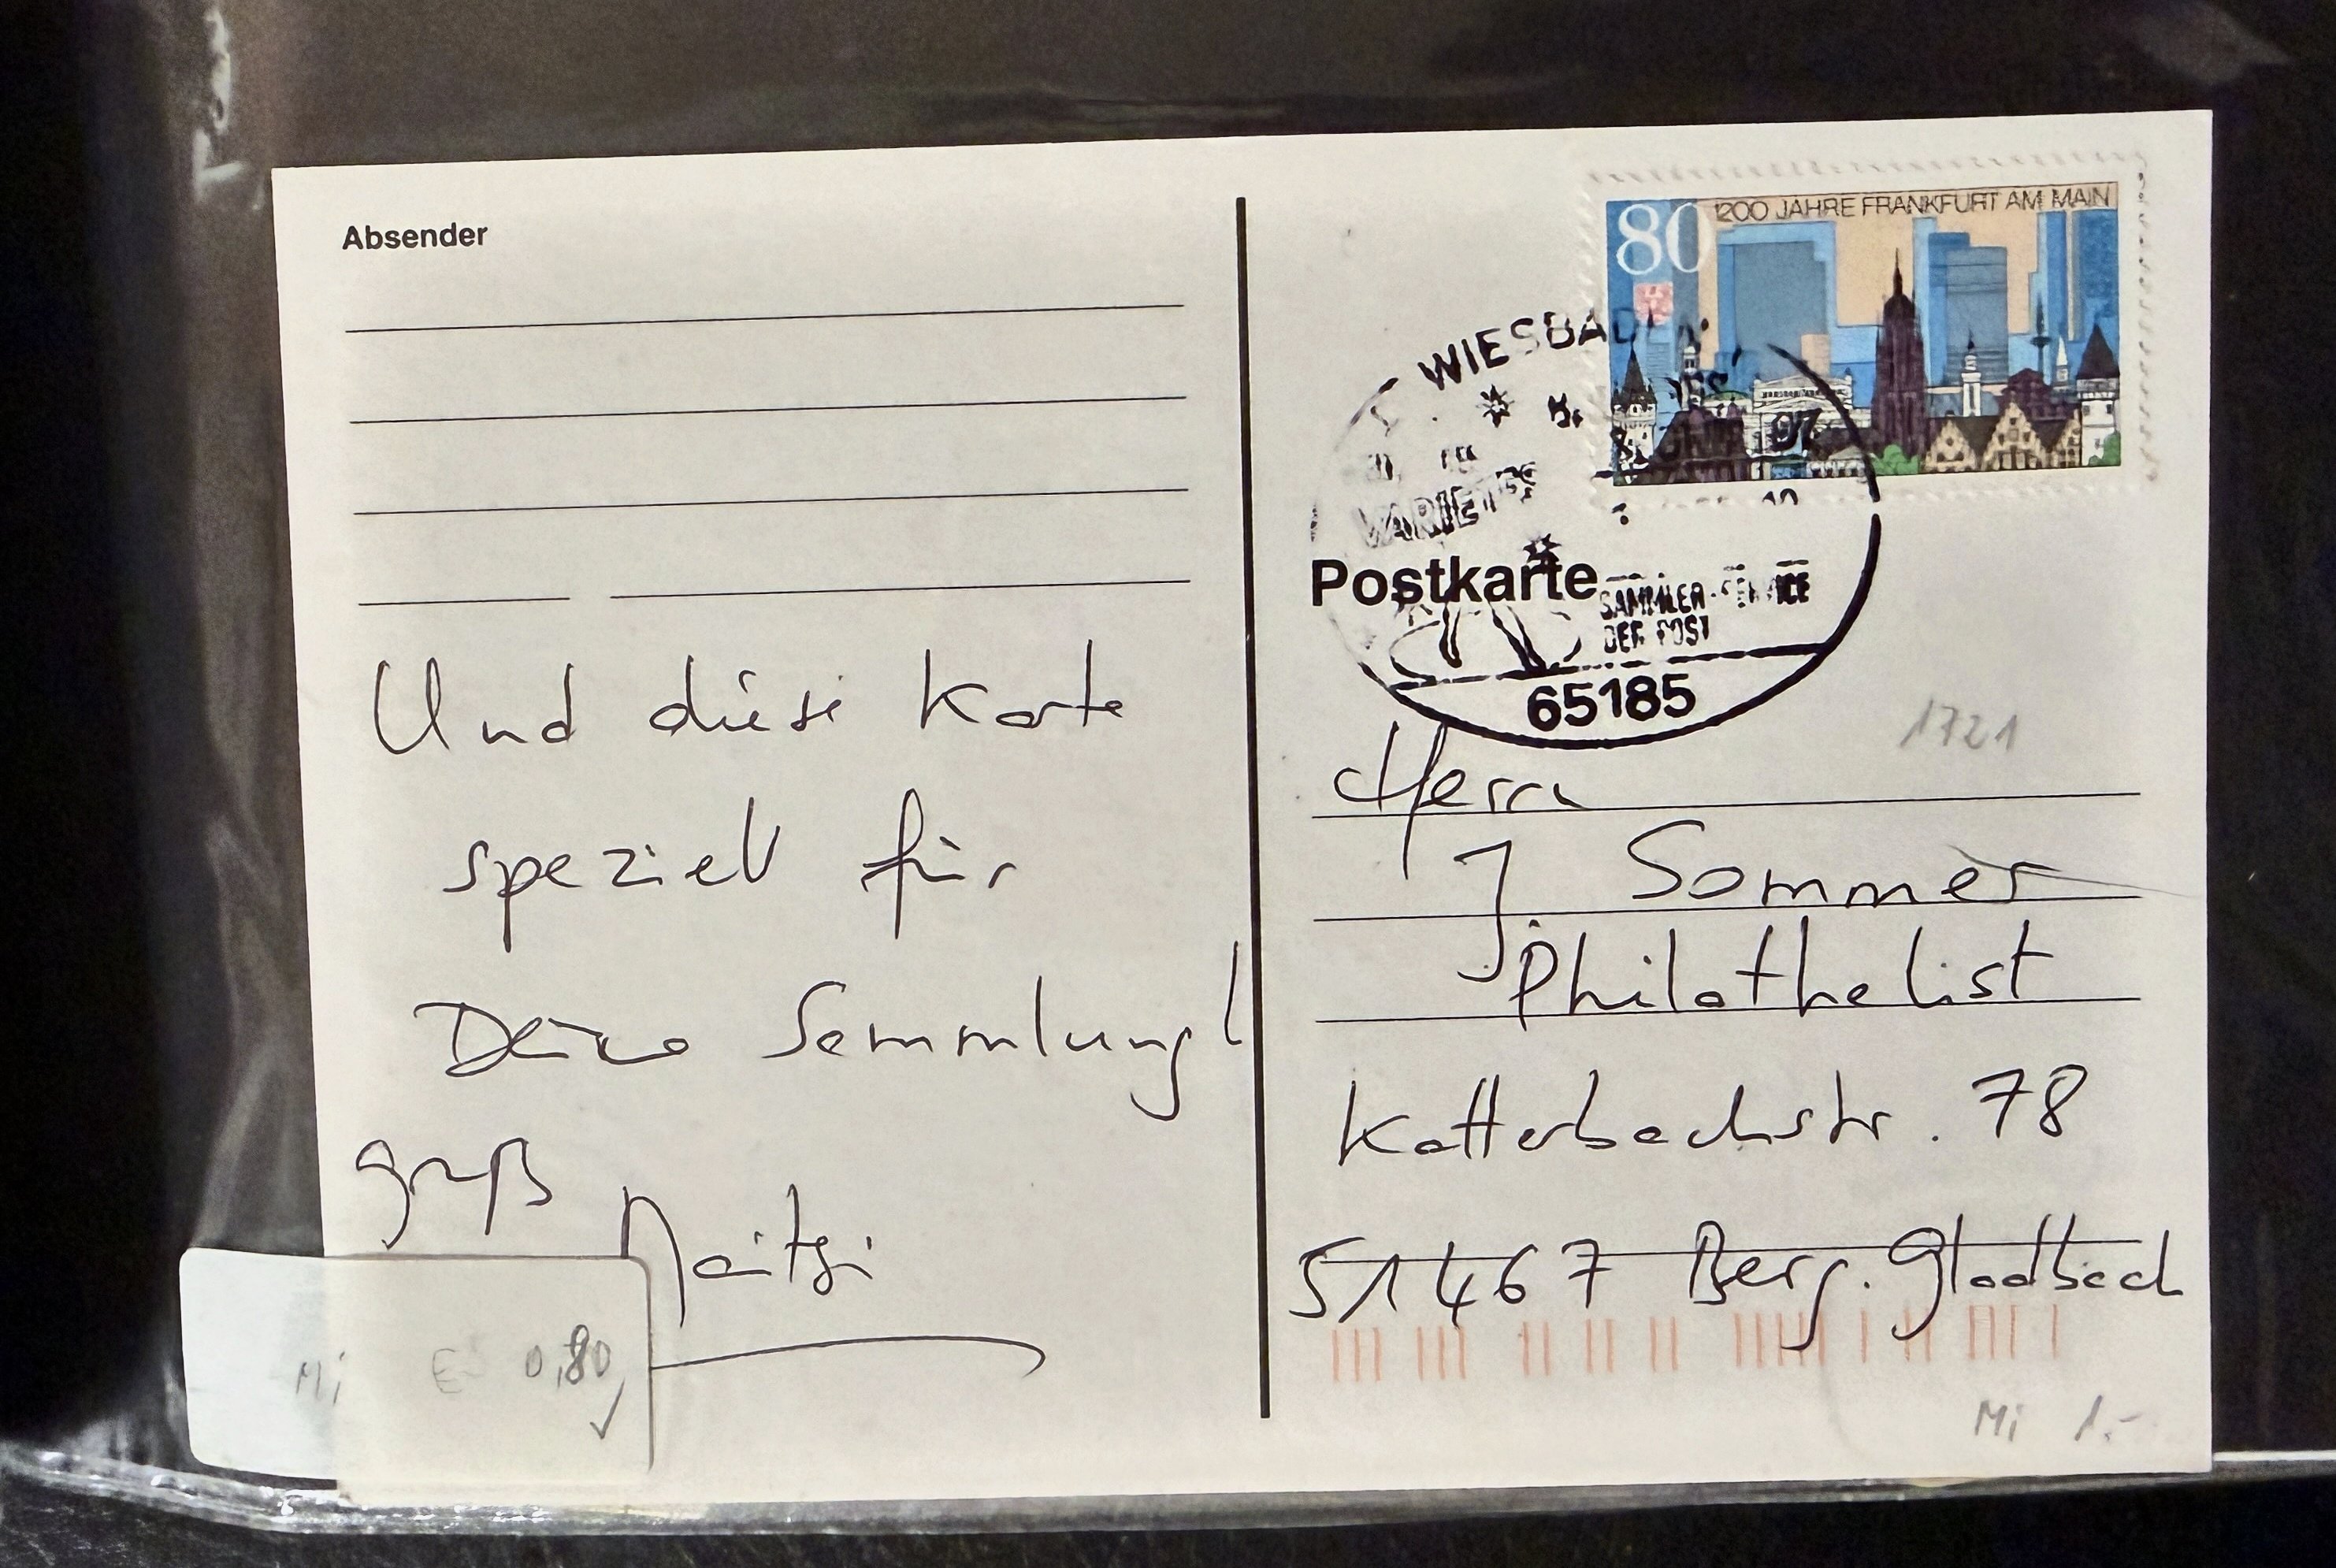 Absender
Und diese Karte
speziell für
Deine Sammlung!
gruß
80 1200 JAHRE FRANKFURT AM MAIN
WIESBADEN
97
VARIETE
Postkarte
SAMMLER-SERVICE
DER POST
65185
1721
Herrn
J. Sommer
Philathelist
Katterbachstr. 78
51467 Berg. Gladbach
Mi 1.-
Mi € 0,80